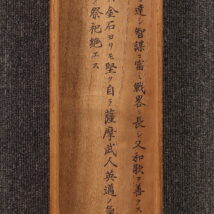 達シ智謀ニ富ミ戦略ニ長シ又和歌ヲ善クス
金石ヨリモ堅ク自ラ薩摩武人英邁ノ
祭祀絶エス